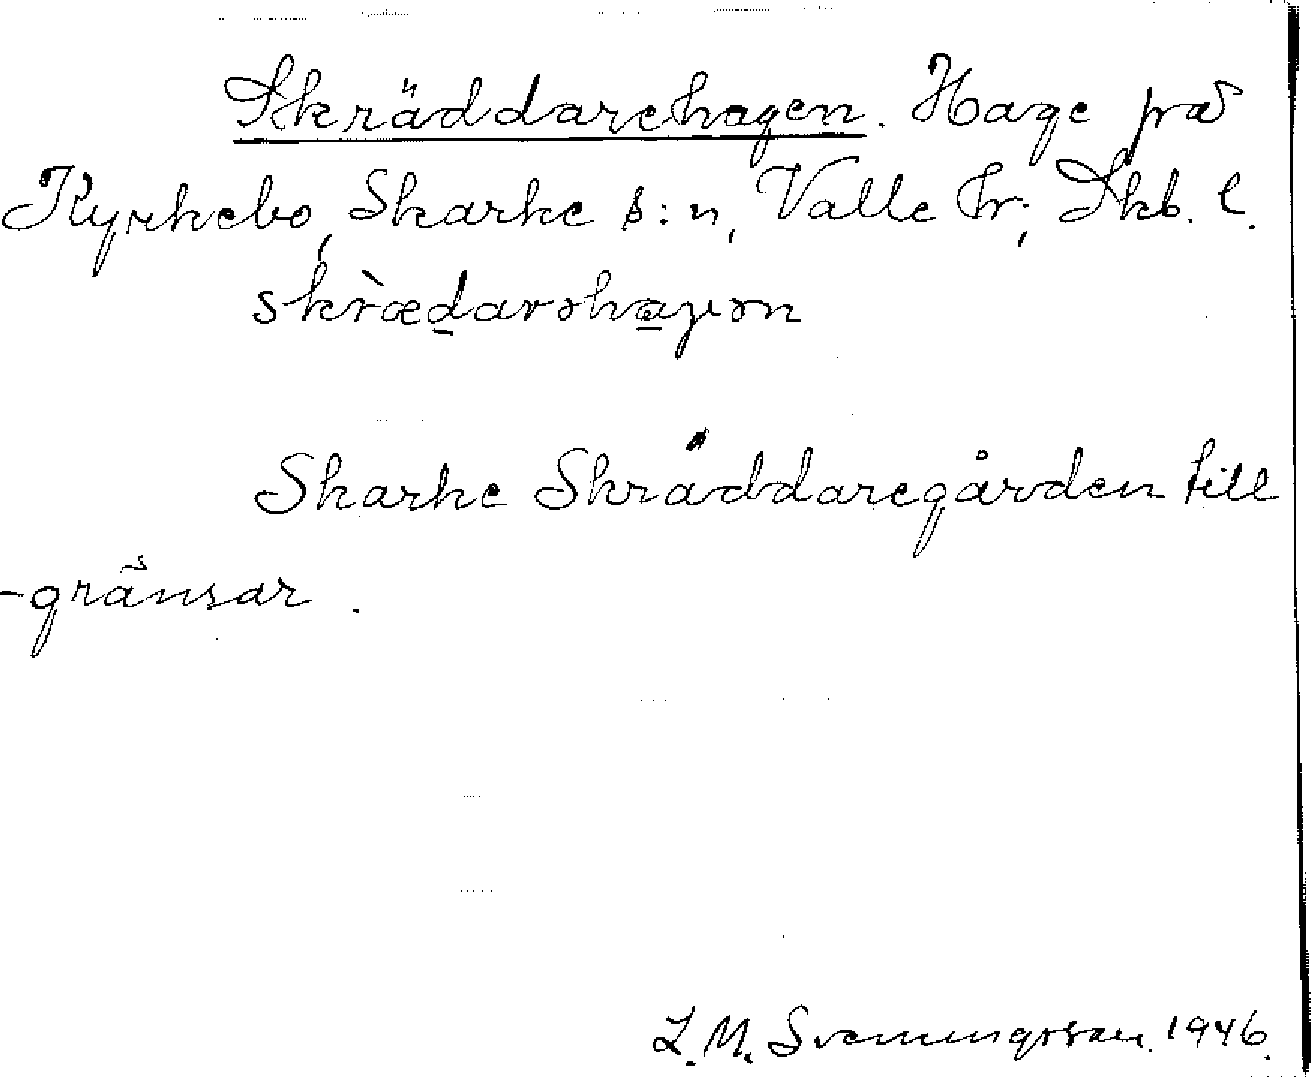 Skräddarehagen. Hage på
Kyrkebo, Skarke s:n, Valle hr; Skb. l.
skrædarəhaγən
Skarke Skräddaregården till
-gränsar.
L. M. Svenungsson 1946.